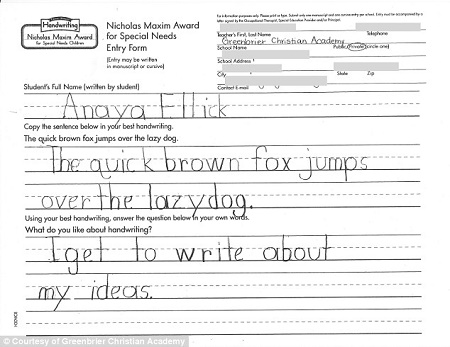 Handwriting
Nicholas Maxim Award
for Special Needs Children
Nicholas Maxim Award
for Special Needs
Entry Form
(Entry may be written
in manuscript or cursive)
For information purposes only. Please print or type. Submit only one manuscript and one cursive entry per school. Entry must be accompanied by a
letter signed by the Occupational Therapist, Special Education Provider and/or Principal.
Teacher's First, Last Name Telephone
Greenbrier Christian Academy
School Name Public/Private (circle one)
School Address
City State Zip
Contact E-mail
Student's Full Name (written by student)
Anaya Ellick
Copy the sentence below in your best handwriting.
The quick brown fox jumps over the lazy dog.
The quick brown fox jumps
over the lazy dog.
Using your best handwriting, answer the question below in your own words.
What do you like about handwriting?
I get to write about
my ideas.
© Courtesy of Greenbrier Christian Academy